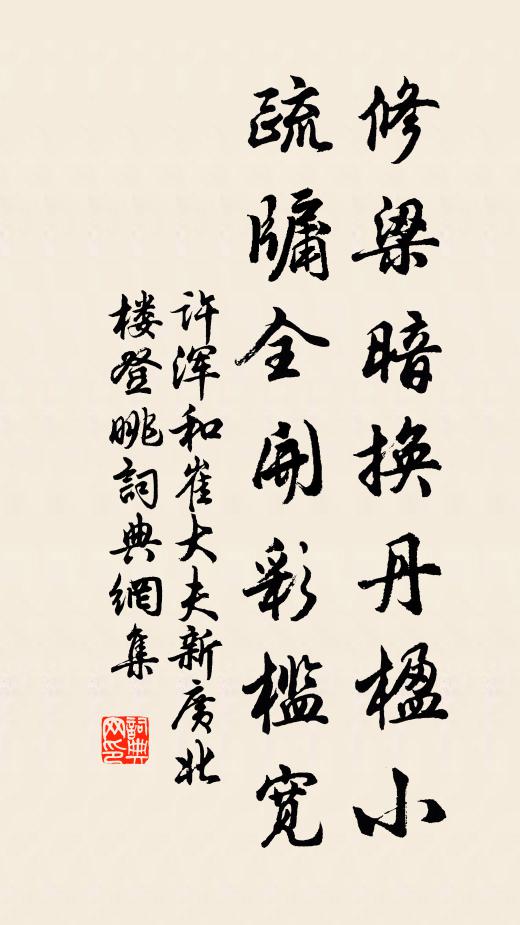 修梁暗换丹楹小
疏牖全開彩槛寬
许浑和崔大夫新廣北
楼登眺詞典網集
詞典
网印